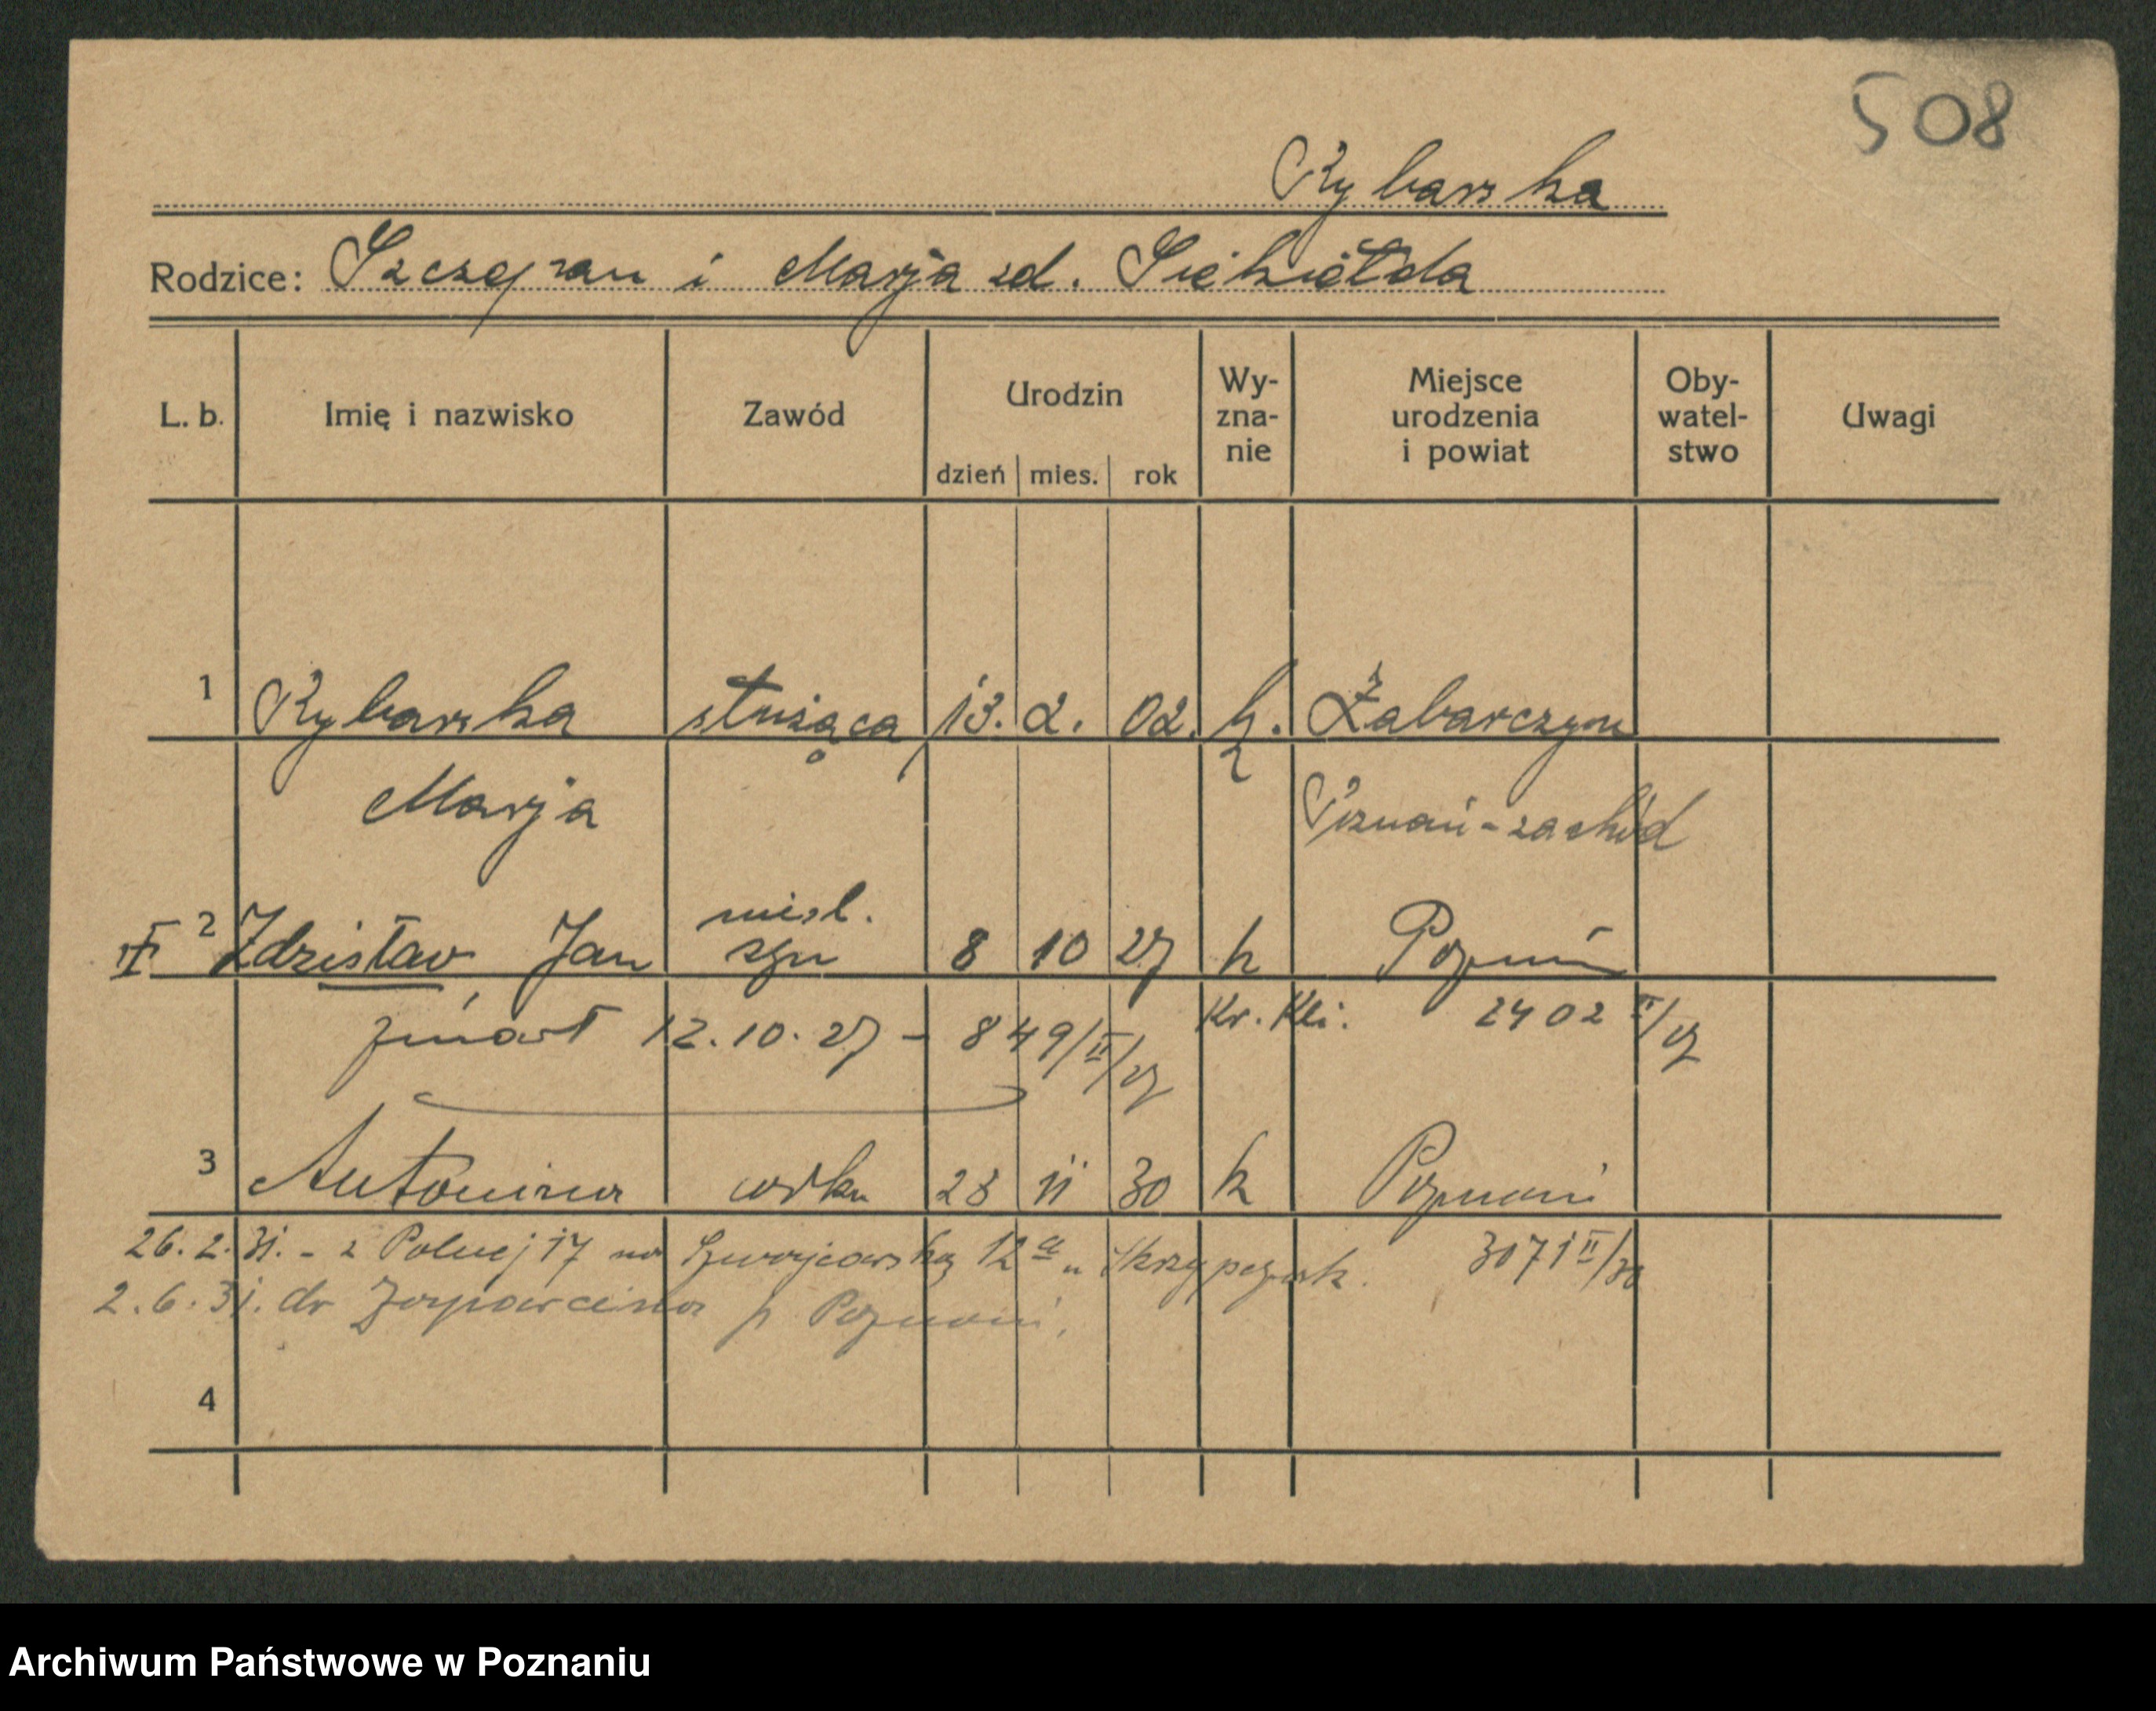 508
Rybarska
Rodzice: Szczepan i Marja zd.
L. b. Imię i nazwisko Zawód Urodzin dzień mies. rok Wy-zna-nie Miejsce urodzenia i powiat Oby-watel-stwo Uwagi
1 Rybarska służąca 13. 2. 02. k. Żabarczyn
Marja Poznań-zachód
nieśl.
2 Zdzisław Jan syn 8 10 27 k Poznań
zmarł 12.10.27 - 849/II/27 Kr. Kli. 2402 II/27
3 Antonina córka 28 11 30 k Poznań
26.2.31. - z Polnej 17 na 12a u 3071 II/30
2.6.31. do p Poznań.
4
Archiwum Państwowe w Poznaniu